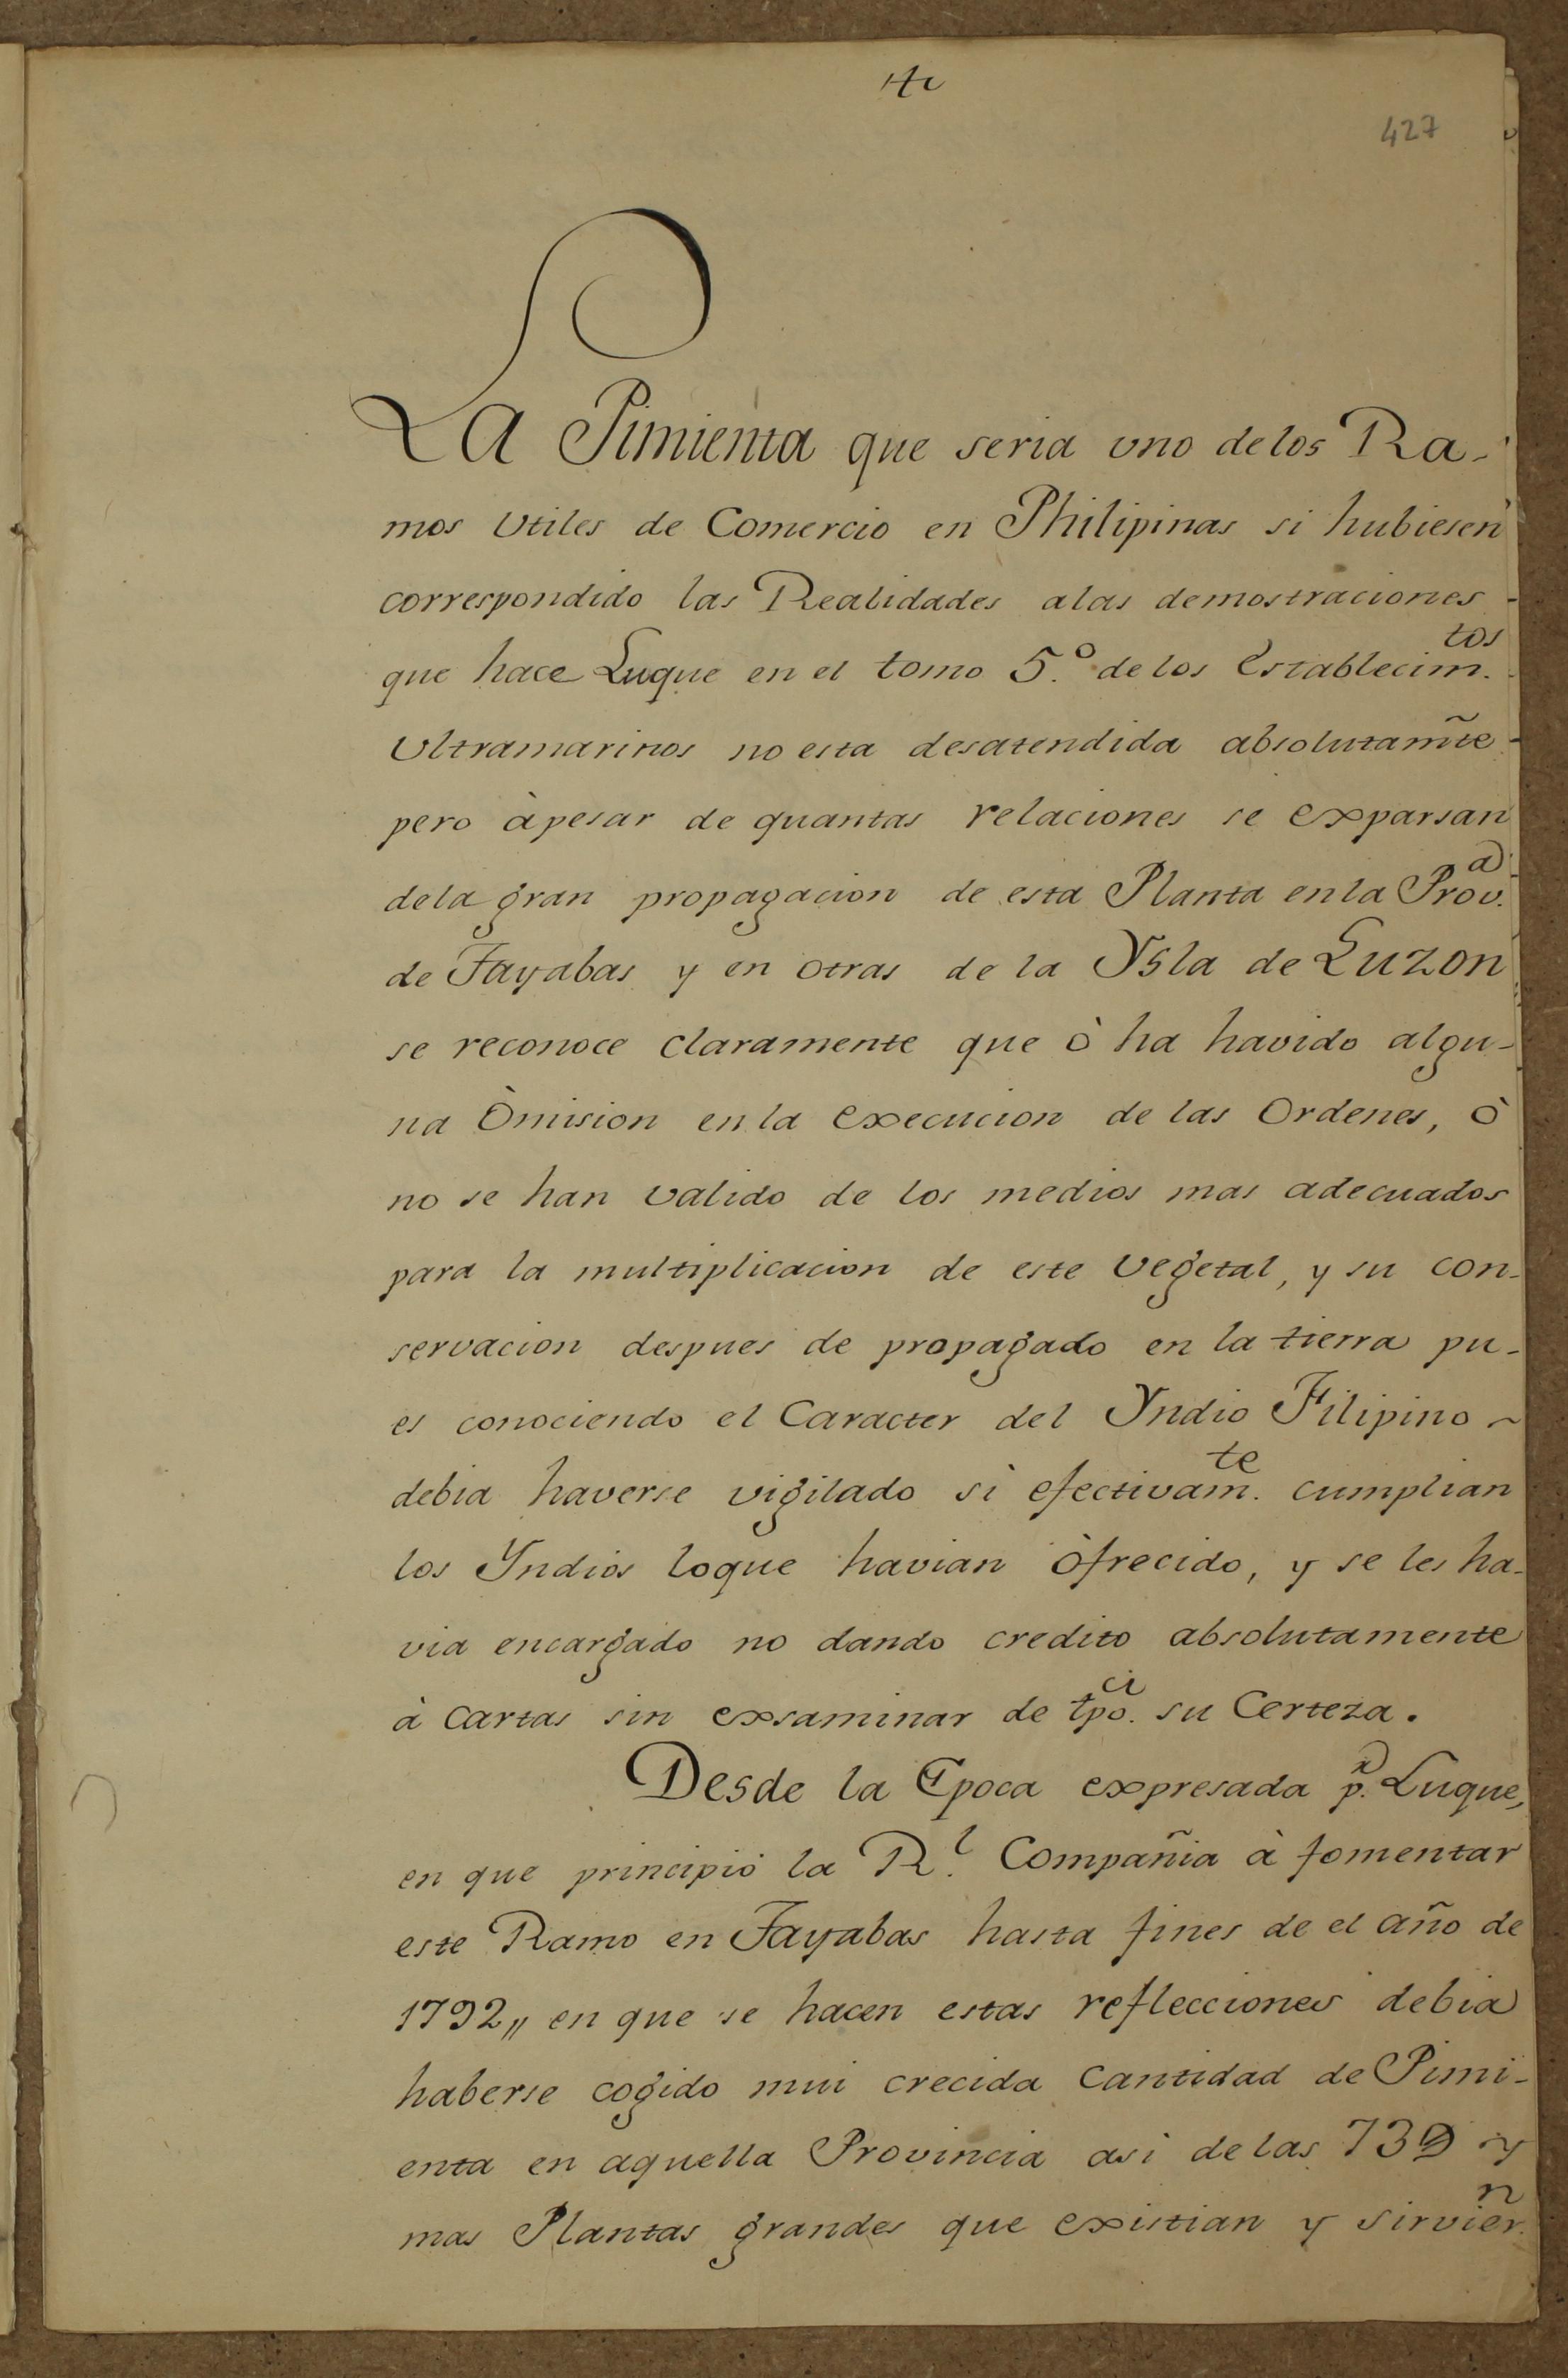 427
La Pimienta que seria uno delos Ra-
mos Utiles de Comercio en Philipinas si hubiesen
correspondido las Realidades alas demostraciones
que hace Luque en el tomo 5.º de los Establecim.tos
Ultramarinos no esta desatendida absolutam̃te
pero àpesar de quantas relaciones se exparsan
dela gran propagacion de esta Planta enla Prov.a
de Tayabas y en otras de la Ysla de Luzon
se reconoce claramente que ò ha havido algu-
na Òmision en la execucion de las Ordenes, ò
no se han valido de los medios mas adecuados
para la multiplicacion de este Vegetal, y su con-
servacion despues de propagado en la tierra pu-
es conociendo el Caracter del Yndio Filipino
debia haverse vigilado si efectivam.te cumplian
los Yndios loque havian òfrecido, y se les ha-
via encargado no dando credito absolutamente
à Cartas sin exsaminar de su Certeza.
Desde la Epoca expresada p.r Luque,
en que principiò la R.l Compañia à fomentar
este Ramo en Tayabas hasta fines de el año de
1792,, en que se hacen estas reflecciones debia
haberse cogido mui crecida Cantidad de Pimi-
enta en aquella Provincia asi de las y
mas Plantas grandes que existian y Sirvier.n